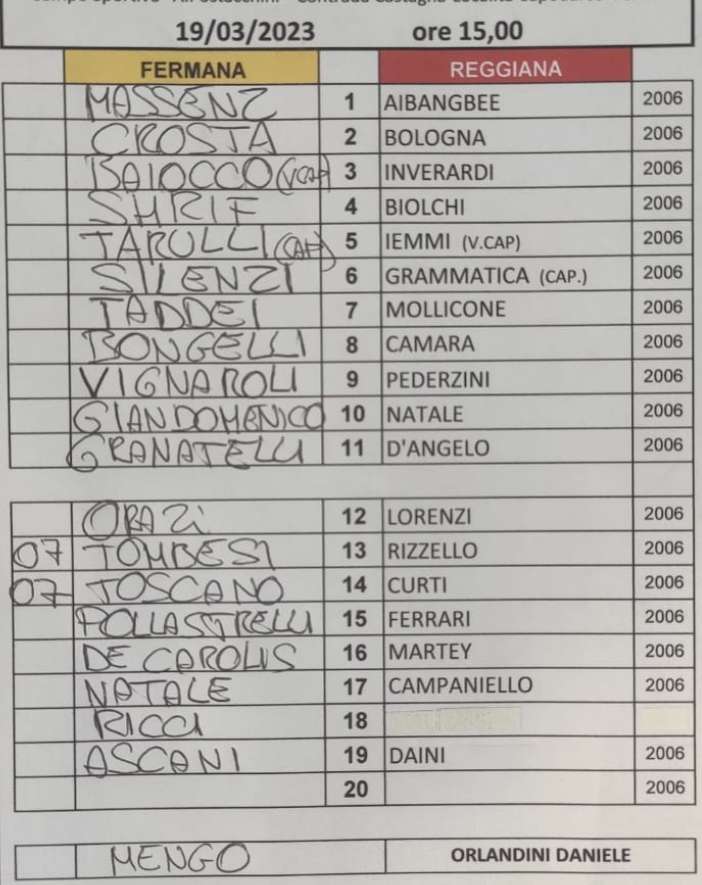 19/03/2023 ore 15,00
FERMANA REGGIANA
MASSENZ 1 AIBANGBEE 2006
CROSTA 2 BOLOGNA 2006
BAIOCCO (VCAP) 3 INVERARDI 2006
SHRIF 4 BIOLCHI 2006
TARULLI (CAP) 5 IEMMI (V.CAP) 2006
SILENZI 6 GRAMMATICA (CAP.) 2006
TADDEI 7 MOLLICONE 2006
BONGELLI 8 CAMARA 2006
VIGNAROLI 9 PEDERZINI 2006
GIANDOMENICO 10 NATALE 2006
GRANATELLI 11 D'ANGELO 2006
ORAZi 12 LORENZI 2006
07 TOMBESI 13 RIZZELLO 2006
07 TOSCANO 14 CURTI 2006
POLLASTRELLI 15 FERRARI 2006
DE CAROLIS 16 MARTEY 2006
NATALE 17 CAMPANIELLO 2006
RICCI 18
ASCANI 19 DAINI 2006
20 2006
MENGO ORLANDINI DANIELE